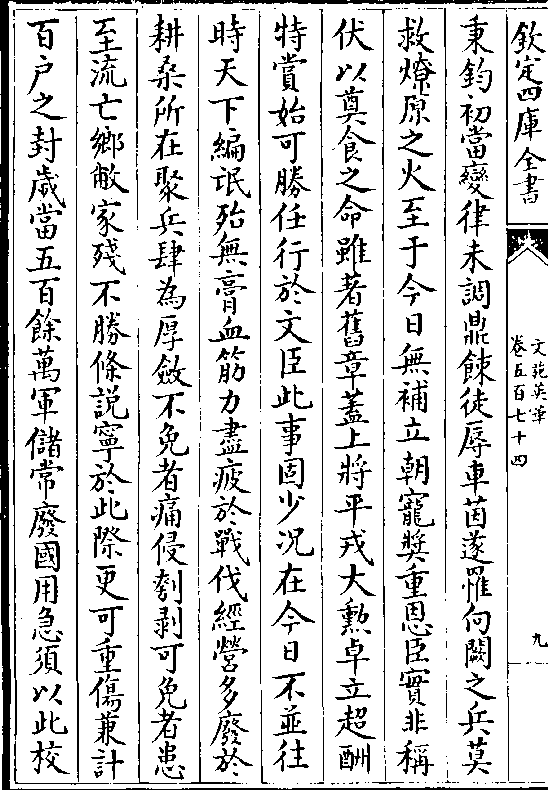 欽定四庫全書
文苑英華
卷五百七十四
九
秉鈞初當變律未調鼎餗徒辱車茵遂罹向闕之兵莫
救燎原之火至于今日無補立朝寵奬重恩臣實非稱
伏以真食之命雖著舊章蓋上將平戎大勲卓立超酬
特賞始可勝任行於文臣此事固少况在今日不並往
時天下編氓殆無膏血筋力盡疲於戰伐經營多廢於
耕桑所在聚兵肆為厚斂不免者痛侵刳剥可免者患
至流亡鄉敝家殘不勝條説寧於此際更可重傷兼計
百户之封歲當五百餘萬軍儲常廢國用急須以此校